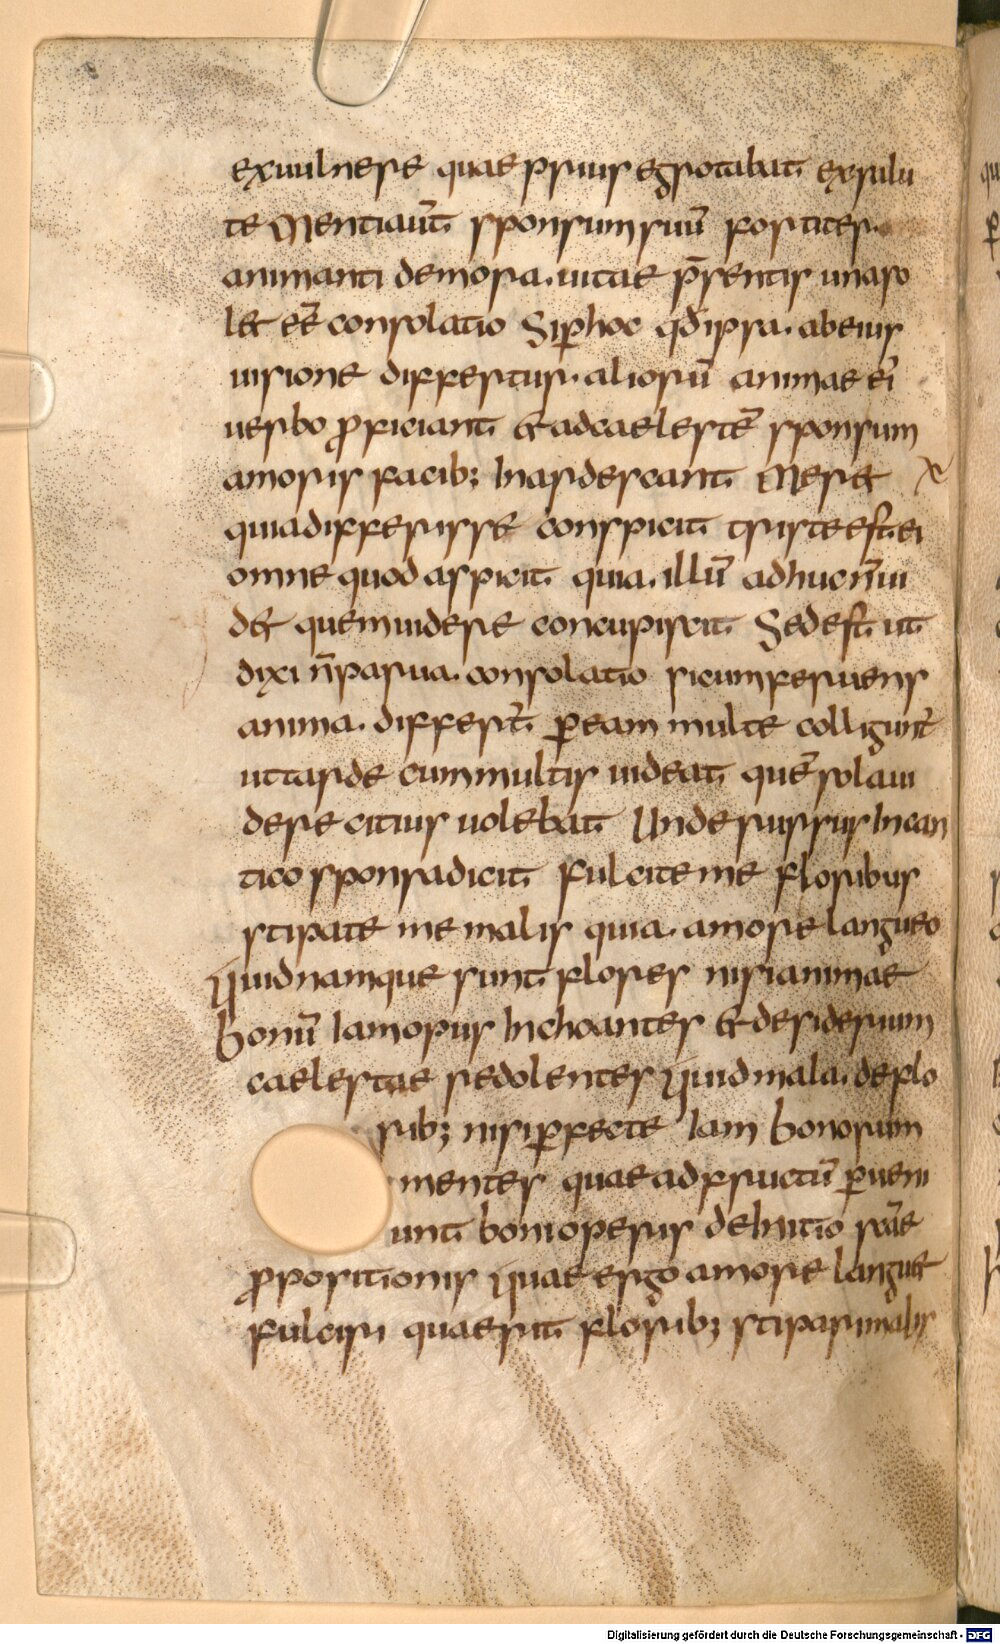 exuulnere quae prius egrotabat exsalu
te Mentiaut̄ sponsum suū fortiter
animanti demora. uitae p̄sentis una so
let eē consolatio Si ꝑ hoc qđ ipsa. ab eius
uisione differtur. aliorū animae ei'
uerbo ꝓficiant & ad caelestē sponsum
amoris facib; Inardescant Meret
quia differri se conspicit triste est ei
omne quod aspicit quia. illū adhuc n̄ ui
det quem uidere concupiscit Sed est ut
dixi n̄ parua. consolatio si cum feruens
anima. differt̄ ꝑ eam multe colligunt̄
ut tarde cum multis uideat quē sola ui
dere citius uolebat Unde rursus In can
tico sponsa dicit fulcite me floribus
stipate me malis quia. amore langueo
Quid namque sunt flores nisi animae
bonū Iam opus Inchoantes & desiderium
caeleste redolentes Quid mala. de flo
rib; nisi ꝑfecte Iam bonorum
mentes quae ad fructū ꝑueni
unt boni operis de Initio scāe
ꝓpositionis Quae ergo amore languet
fulciri quaerit florib; stipari malis
Digitalisierung gefördert durch die Deutsche Forschungsgemeinschaft - DFG